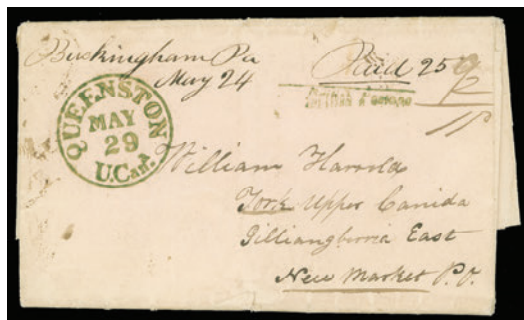 Buckingham Pa
May 24
Paid 25
QUEENSTON
MAY
29
U.Can.
William Harrold
York Upper Canida
Gilliangborria East
New Market P.O.